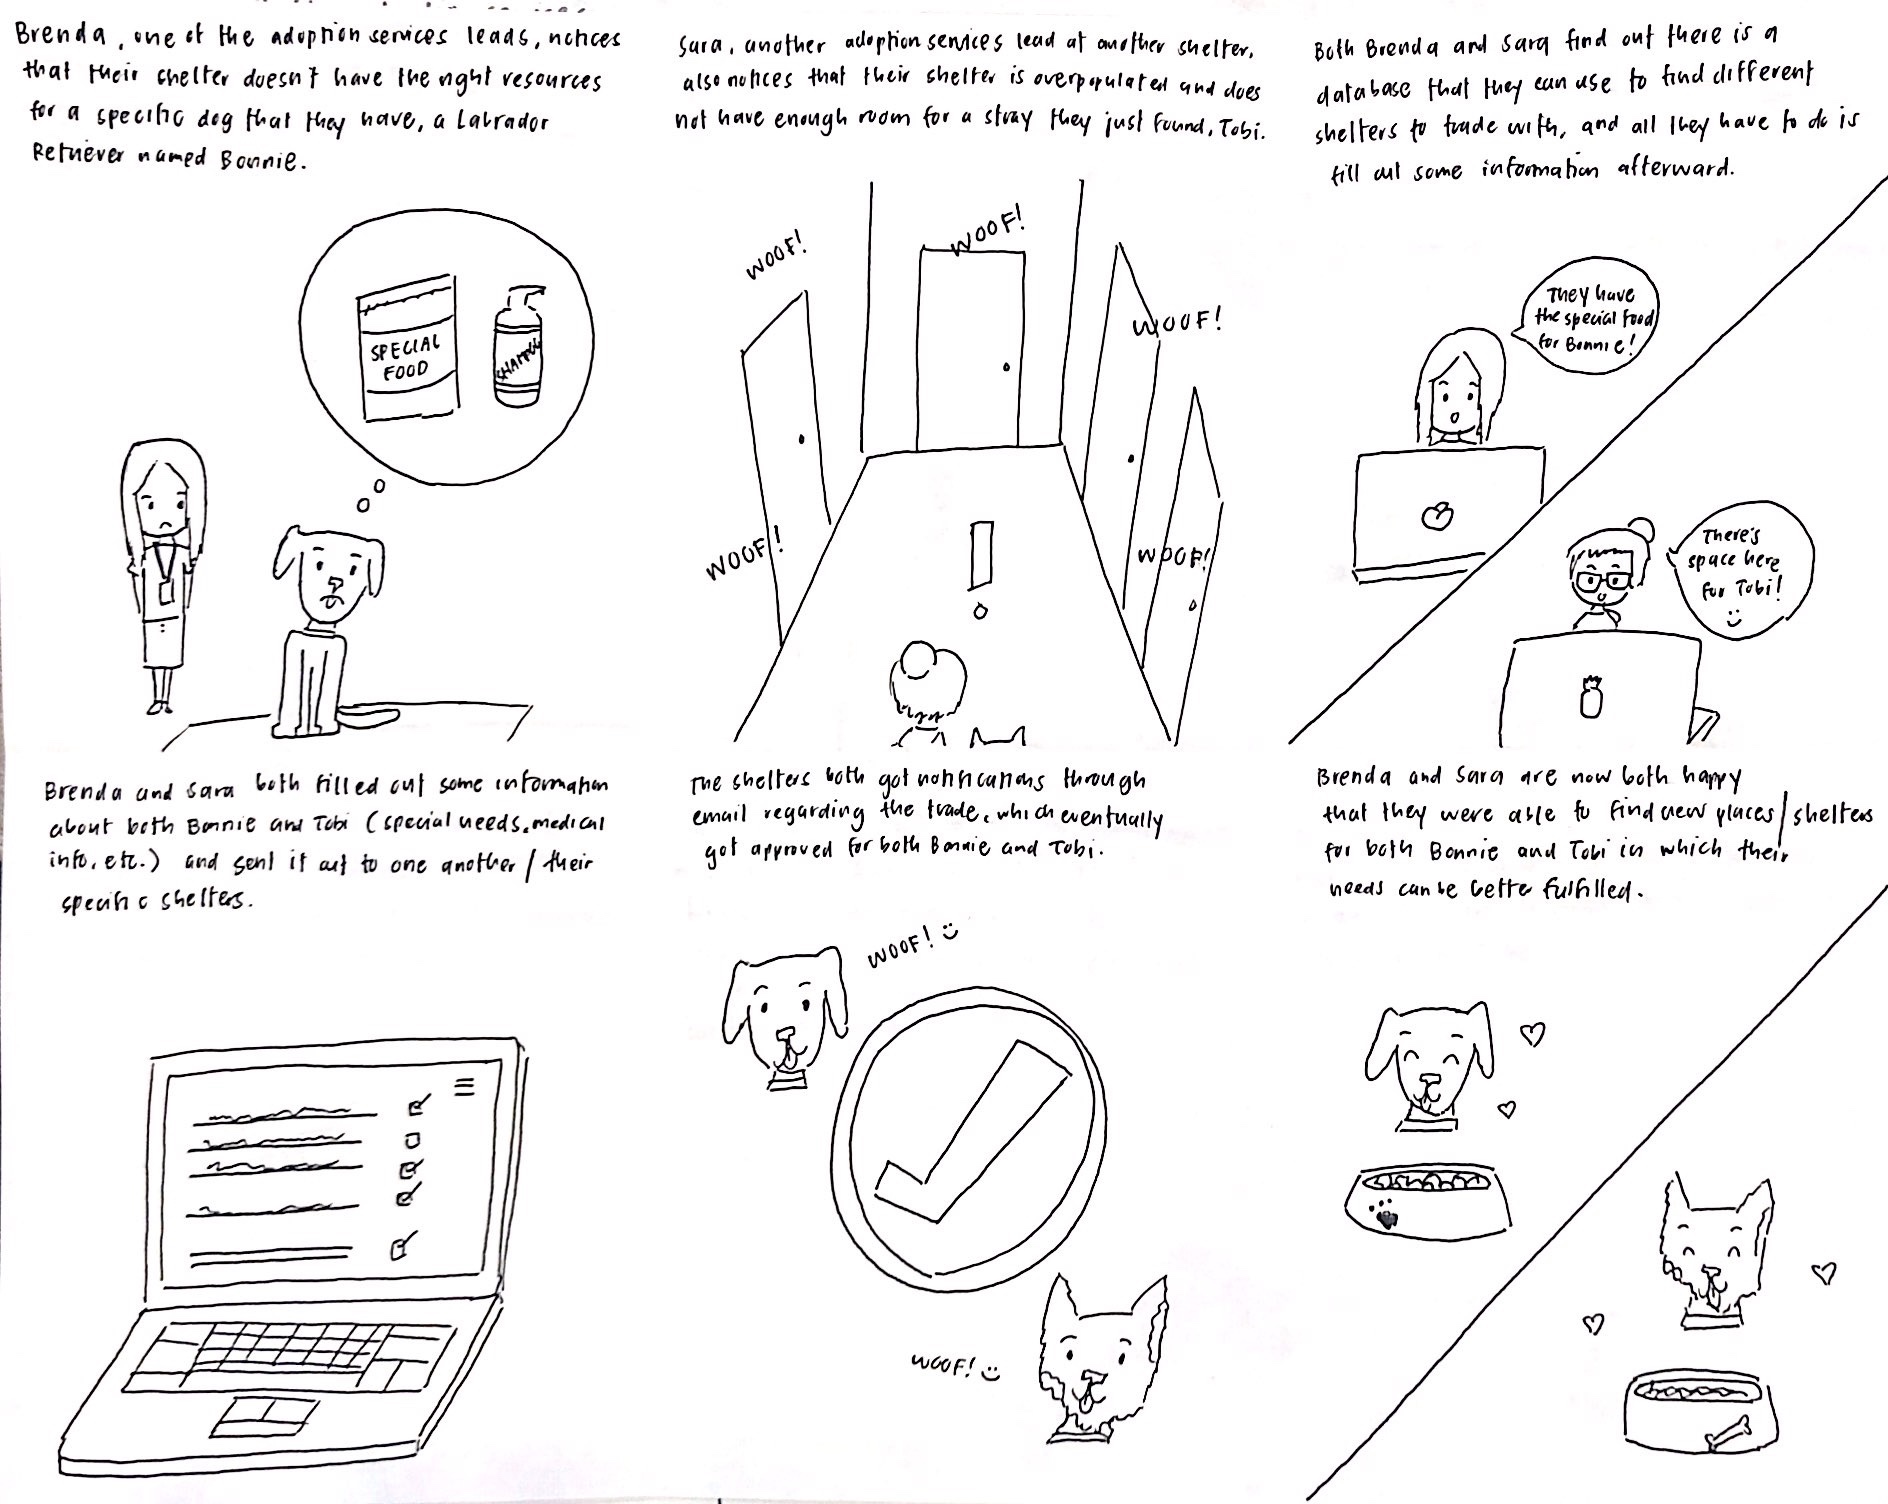 Brenda, one of the adoption services leads, notices
that their shelter doesn't have the right resources
for a specific dog that they have, a Labrador
Retriever named Bonnie.
SPECIAL
FOOD
SHAMPOO
Sara, another adoption services lead at another shelter,
also notices that their shelter is overpopulated and does
not have enough room for a stray they just found, Tobi.
WOOF!
WOOF!
WOOF!
WOOF!
WOOF!
Both Brenda and Sara find out there is a
database that they can use to find different
shelters to trade with, and all they have to do is
fill out some information afterward.
They have
the special food
for Bonnie!
There's
space here
for Tobi!
Brenda and Sara both filled out some information
about both Bonnie and Tobi (special needs, medical
info, etc.) and sent it out to one another/their
specific shelters.
The shelters both got notifications through
email regarding the trade, which eventually
got approved for both Bonnie and Tobi.
WOOF!
WOOF!
Brenda and Sara are now both happy
that they were able to find new places/shelters
for both Bonnie and Tobi in which their
needs can be better fulfilled.